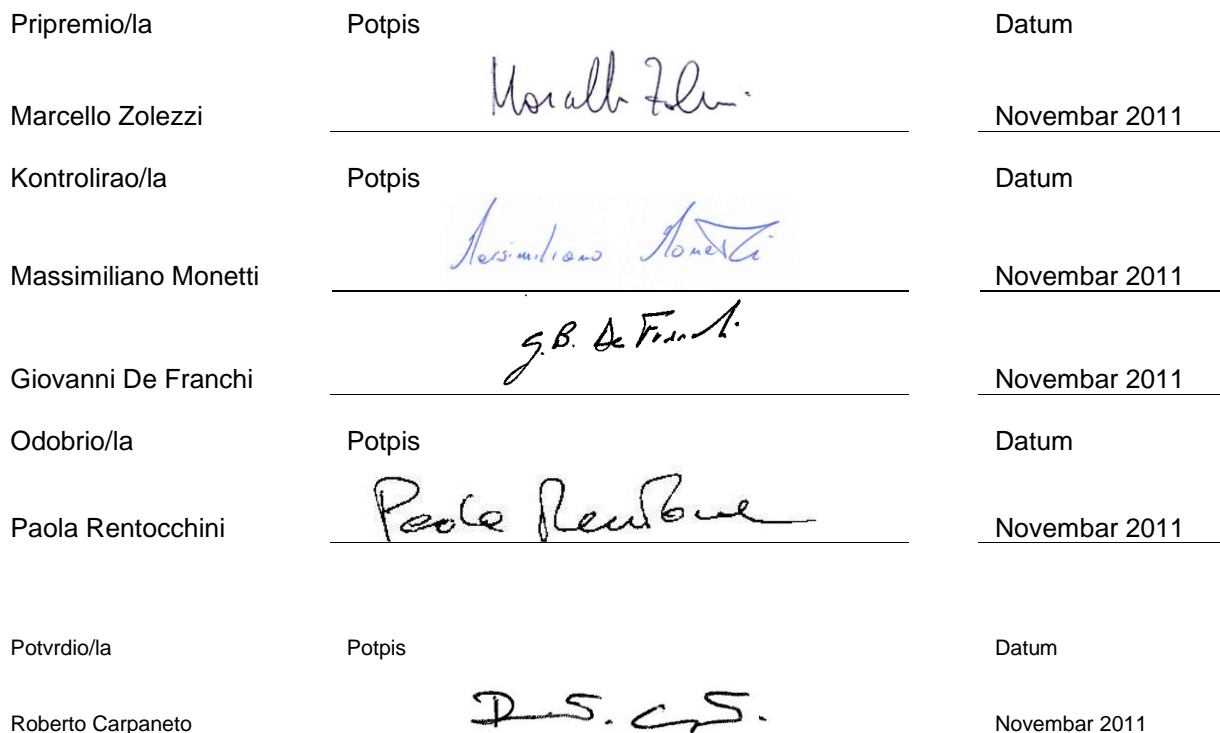 Pripremio/la Potpis Datum
Marcello Zolezzi Novembar 2011
Kontrolirao/la Potpis Datum
Massimiliano Monetti
Massimiliano Monetti Novembar 2011
G.B. De Franchi
Giovanni De Franchi Novembar 2011
Odobrio/la Potpis Datum
Paola
Paola Rentocchini Novembar 2011
Potvrdio/la Potpis Datum
Roberto Carpaneto Novembar 2011